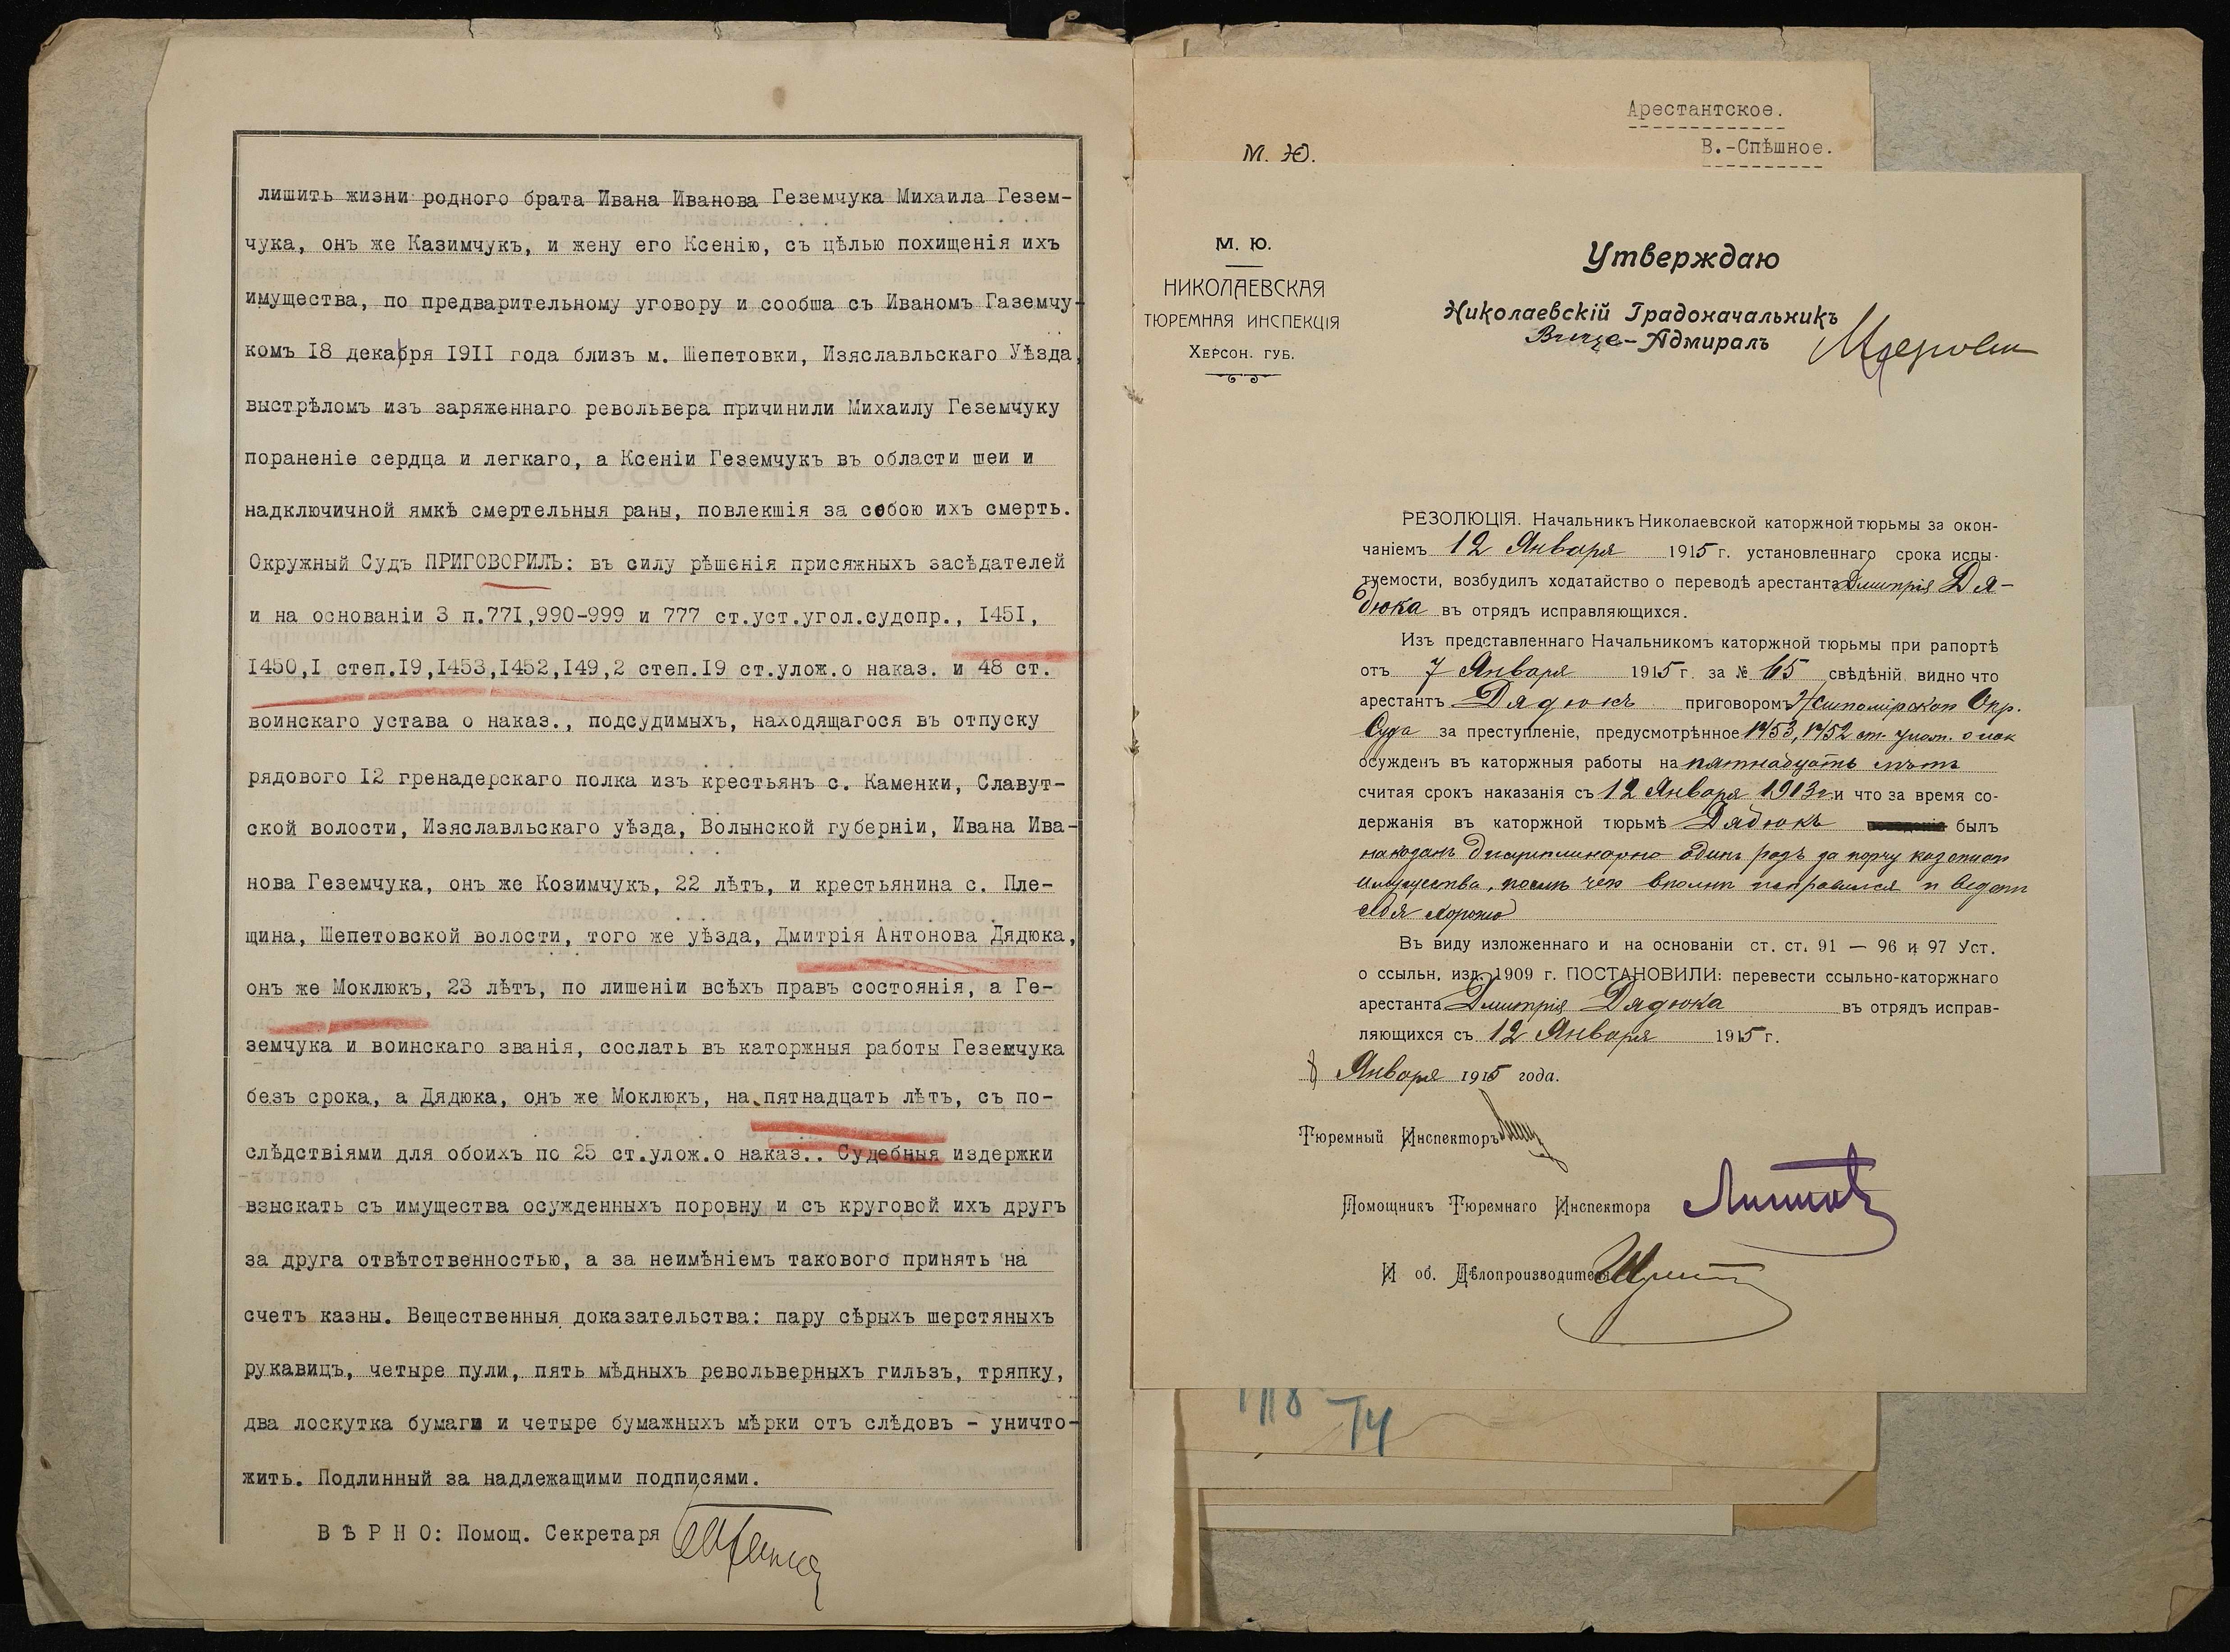 лишить жизни родного брата Ивана Иванова Геземчука Михаила Гезем-
чука, онъ же Казимчукъ, и жену его Ксенію, съ цѣлью похищенія ихъ
имущества, по предварительному уговору и сообша съ Иваномъ Газемчу-
комъ I8 декабря I9II года близъ м. Шепетовки, Изяславльскаго Уѣзда,
выстрѣломъ изъ заряженнаго револьвера причинили Михаилу Геземчуку
пораненіе сердца и легкаго, а Ксеніи Геземчукъ въ области шеи и
надключичной ямкѣ смертельныя раны, повлекшія за собою ихъ смерть.
Окружный Судъ ПРИГОВОРИЛЪ: въ силу рѣшенія присяжныхъ засѣдателей
и на основаніи 3 п.77I,990-999 и 777 ст.уст.угол.судопр., I45I,
I450,I степ.I9,I453,I452,I49,2 степ.I9 ст.улож.о наказ. и 48 ст.
воинскаго устава о наказ., подсудимыхъ, находящагося въ отпуску
рядового I2 гренадерскаго полка изъ крестьянъ с. Каменки, Славут-
ской волости, Изяславльскаго уѣзда, Волынской губерніи, Ивана Ива-
нова Геземчука, онъ же Козимчукъ, 22 лѣтъ, и крестьянина с. Пле-
щина, Шепетовской волости, того же уѣзда, Дмитрія Антонова Дядюка,
онъ же Моклюкъ, 23 лѣтъ, по лишеніи всѣхъ правъ состоянія, а Ге-
земчука и воинскаго званія, сослать въ каторжныя работы Геземчука
безъ срока, а Дядюка, онъ же Моклюкъ, на пятнадцать лѣтъ, съ по-
слѣдствіями для обоихъ по 25 ст.улож.о наказ.. Судебныя издержки
взыскать съ имущества осужденныхъ поровну и съ круговой ихъ другъ
за друга отвѣтственностью, а за неимѣніемъ такового принять на
счетъ казны. Вещественныя доказательства: пару сѣрыхъ шерстяныхъ
рукавицъ, четыре пули, пять мѣдныхъ револьверныхъ гильзъ, тряпку,
два лоскутка бумаги и четыре бумажныхъ мѣрки отъ слѣдовъ - уничто-
жить. Подлинный за надлежащими подписями.
В Ѣ Р Н О: Помощ. Секретаря
Арестантское.
В.-Спѣшное.
М. Ю.
М. Ю.
НИКОЛАЕВСКАЯ
ТЮРЕМНАЯ ИНСПЕКЦІЯ
ХЕРСОН. ГУБ.
Утверждаю
Николаевскій Градоначальникъ
Вице-Адмиралъ
РЕЗОЛЮЦІЯ. Начальникъ Николаевской каторжной тюрьмы за окон-
чаніемъ 12 Января 1915 г. установленнаго срока испы-
туемости, возбудилъ ходатайство о переводѣ арестанта Дмитрія Дя-
дюка въ отрядъ исправляющихся.
Изъ представленнаго Начальникомъ каторжной тюрьмы при рапортѣ
отъ 7 Января 1915 г. за № 65 свѣдѣній видно что
арестантъ Дядюкъ приговоромъ Житомірскаго Окр.
Суда за преступленіе, предусмотрѣнное 1453, 1452 ст. улож. о нак
осужденъ въ каторжныя работы на пятнадцать лѣтъ
считая срокъ наказанія съ 12 Января 1913 г. и что за время со-
держанія въ каторжной тюрьмѣ Дядюкъ былъ
наказанъ дисциплинарно одинъ разъ за порчу казеннаго
имущества, послѣ чего вполнѣ исправился и ведетъ
себя хорошо
Въ виду изложеннаго и на основаніи ст. ст. 91 — 96 и 97 Уст.
о ссыльн. изд. 1909 г. ПОСТАНОВИЛИ: перевести ссыльно-каторжнаго
арестанта Дмитрія Дядюка въ отрядъ исправ-
ляющихся съ 12 Января 1915 г.
8 Января 1915 года.
Тюремный Инспекторъ
Помощникъ Тюремнаго Инспектора
И об. Дѣлопроизводителя